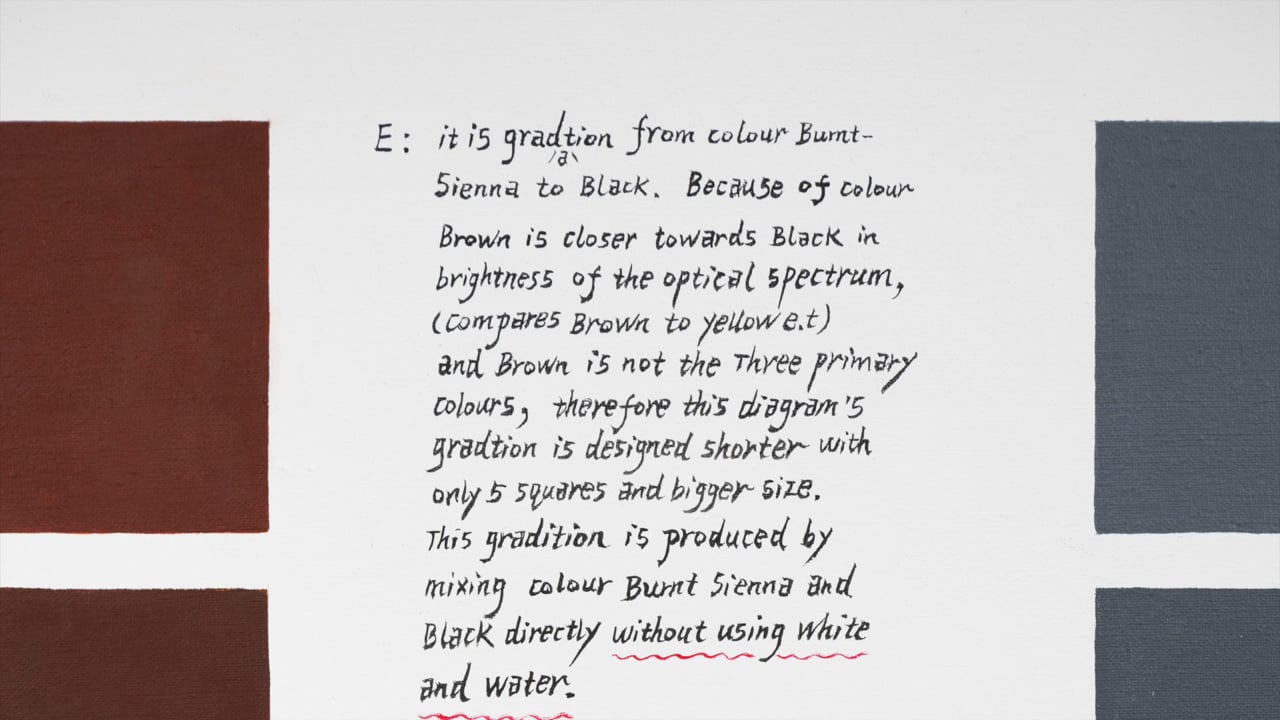 E: it is gradation from colour Burnt-
Sienna to Black. Because of colour
Brown is closer towards Black in
brightness of the optical spectrum,
(compares Brown to yellow e.t)
and Brown is not the Three primary
colours, therefore this diagram's
gradtion is designed shorter with
only 5 squares and bigger size.
This gradition is produced by
mixing colour Burnt Sienna and
Black directly without using white
and water.